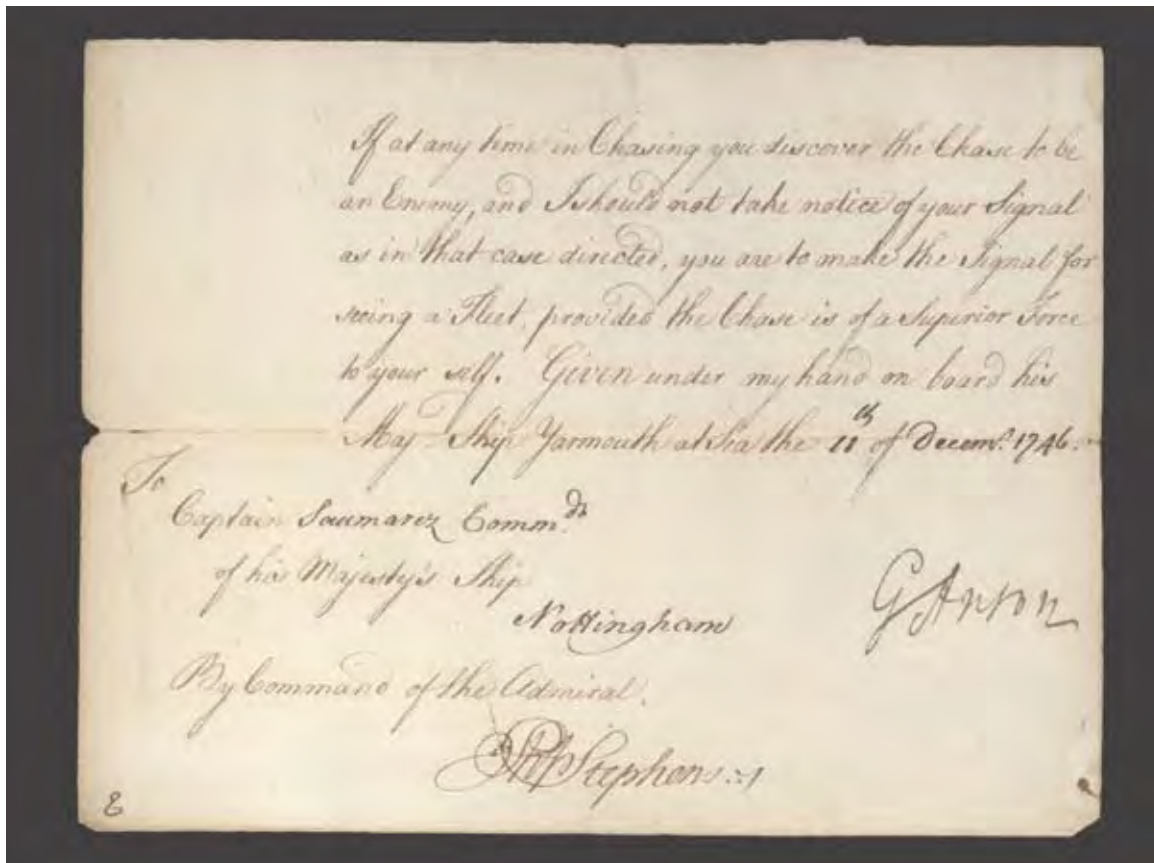 If at any time in Chasing you discover the Chase to be
an Enemy, and I should not take notice of your Signal
as in that case directed, you are to make the Signal for
seeing a Fleet, provided the Chase is of a Superior Force
to your self. Given under my hand on board his
Maj. Ship Yarmouth at Sea the 11th of Decemr. 1746.
To
Captain Saumarez Commdr
of his Majesty's Ship
Nottingham
G Anson
By Command of the Admiral.
Ph Stephens